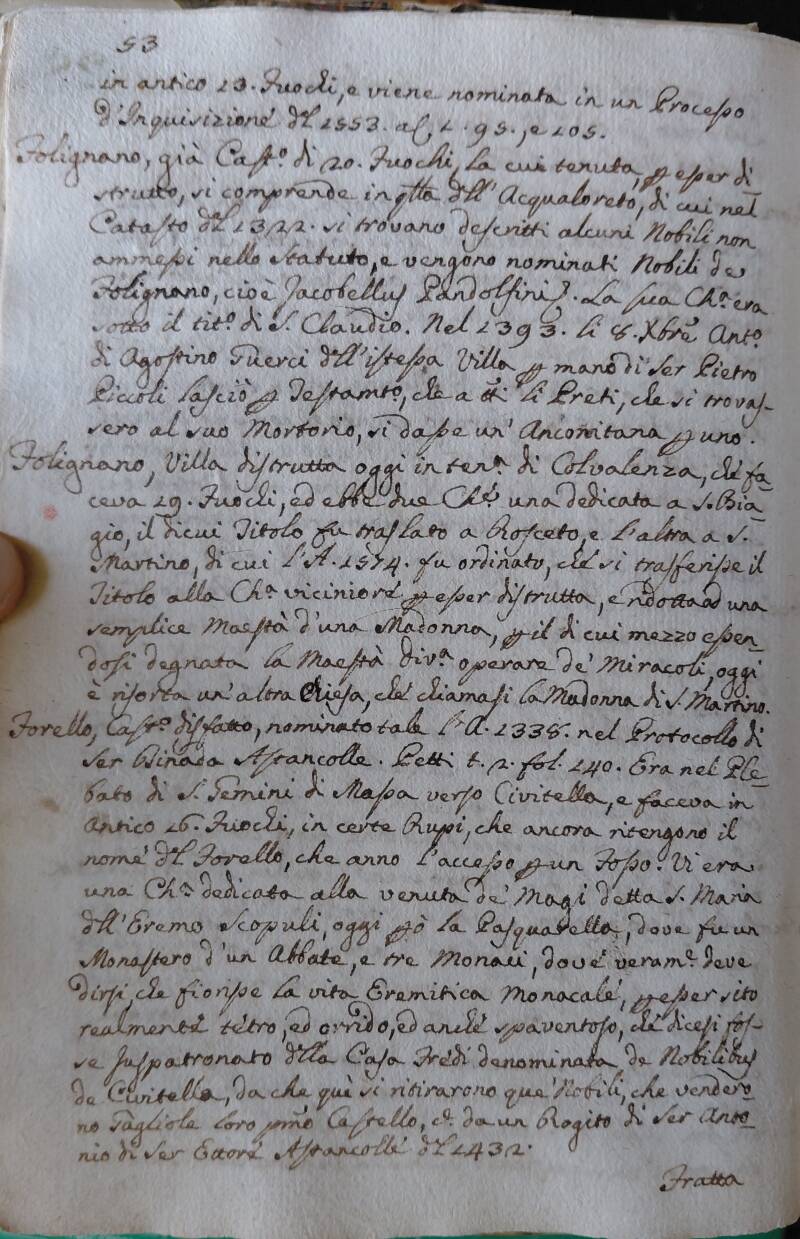 53
in antico 23. Fuochi, e viene nominata in un Processo
d'Inquisizione dl 1553. al, L. 95., e 105.
Folignano, già Castº. di 20. Fuochi, la cui tenuta, p esser di
strutto, si comprende in qlla dll' Acqualoreto, di cui nel
Catasto dl 1322. si trovano descritti alcuni Nobili non
ammessi nello Statuto, e vengono nominati Nobili de
Folignano, cioè Jacobellus Pandolfinis. La sua Chª. era
sotto il titº. di S. Claudio. Nel 1393. li 8. Xbrē Antº.
di Agostino Guerci dll'istessa Villa p mano di Ser Pietro
Piccoli lasciò p Testamtº, che a tti li Preti, che si trovas-
sero al suo Mortorio, si dasse un' Anconitana p uno.
Folignano, Villa distrutta oggi in tenª. di Colvalenza, che fa=
ceva 29. Fuochi, ed ebbe due Chē. una dedicata a S. Bia=
gio, il di cui Titolo fu traslato a Rosceto, e l'altra a S.
Martino, di cui l'A. 1574. fu ordinato, che si trasferisse il
Titolo alla Chª. viciniore p esser distrutta, e ridotta ad una
semplice Maestà d'una Madonna, p il di cui mezzo essen=
dosi degnata la Maestà Divª. operare de' Miracoli, oggi
è risorta un'altra Chiesa, che chiamasi la Madonna di S. Martino.
Forello, Castº. disfatto, nominato tale l'A. 1338. nel Protocollo di
Ser Binada Astancolle. Petti t. 2. fol. 240. Era nel Ple=
bato di S. Gemini di Massa verso Civitella, e faceva in
Antico 26. Fuochi, in certe Rupi, che ancora ritengono il
nome dl Forello, che anno l'accesso p un Fosso. Vi era
una Chª. dedicata alla venuta de' Magi detta S. Maria
dll'Eremo Scopuli, oggi pò la Pasquarella, dove fu un
Monastero d'un Abbate, e tre Monaci, dove veramē. deve
dirsi, che fiorisse la vita Eremitica Monacale, p esser sito
realmente tetro, ed orrido, ed anche spaventoso, che dicesi fos-
se Juspatronato dlla Casa Fredi denominata de Nobilibus
de Civitella, da che què si ritirarono que' Nobili, che vendero=
no Tagliole loro pmō Castello, cē. da un Rogito di Ser Anto=
nio di Ser Ettore Astancolle dl 1432.
Fratta